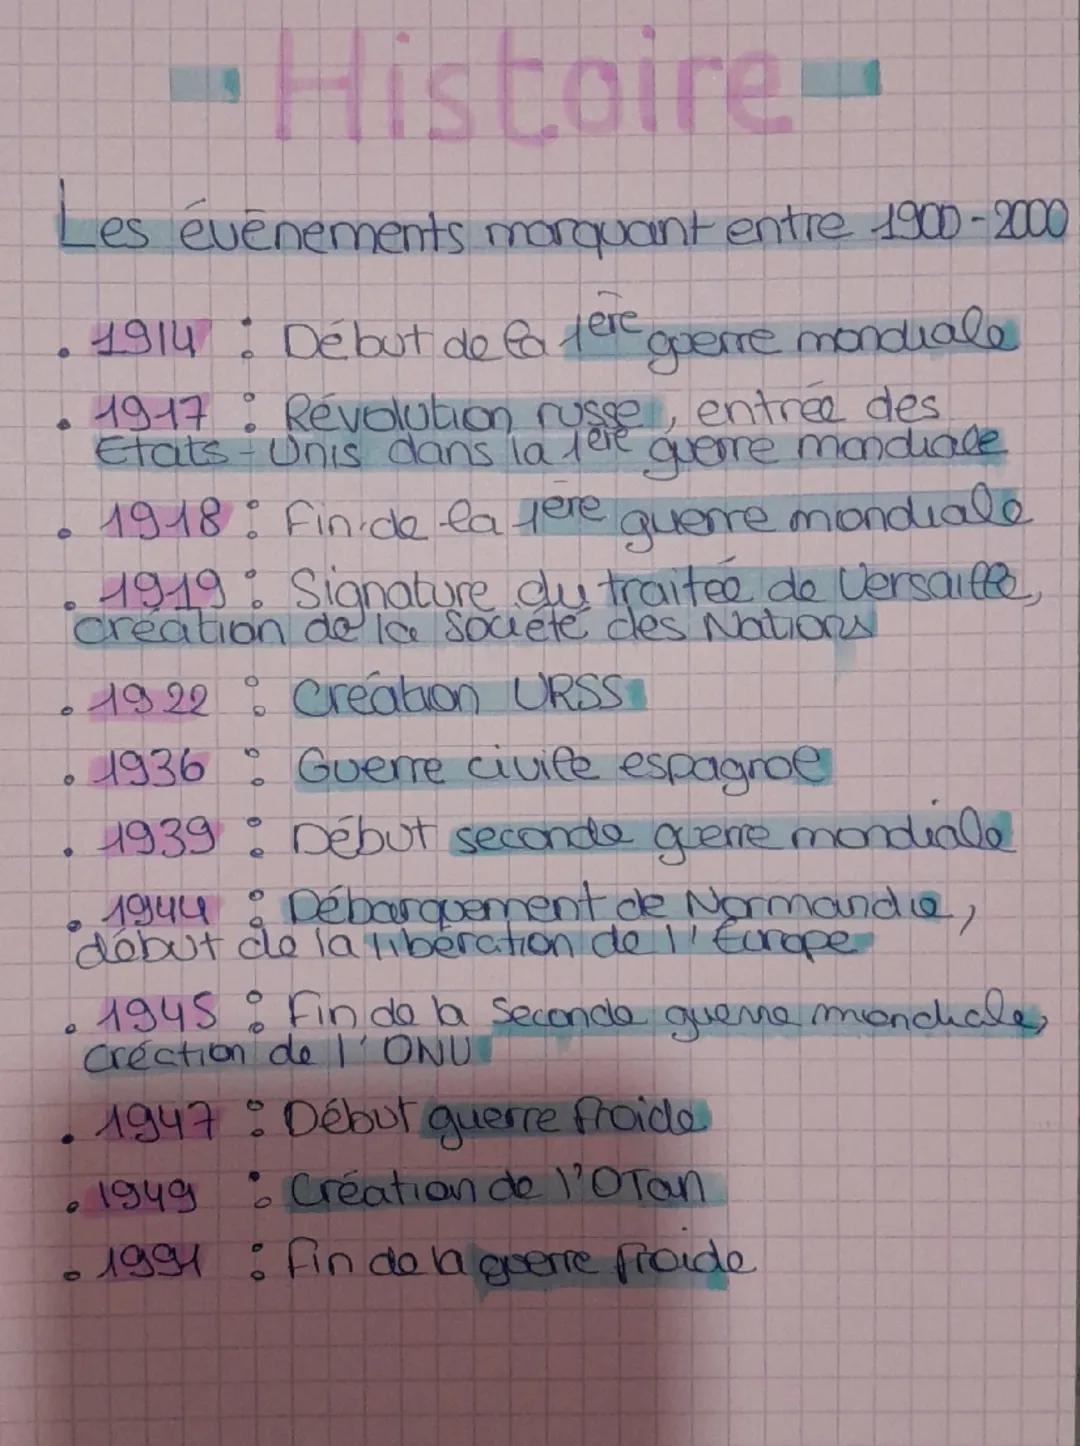 - Histoire -
Les événements marquant entre 1900-2000
. 1914 : Début de la 1ère guerre mondiale
. 1917 : Révolution russe, entrée des
Etats-Unis dans la 1ère guerre mondiale
. 1918 : Fin de la 1ère guerre mondiale
. 1919 : Signature du traitée de Versaille,
création de la Société des Nations
. 1922 : Création URSS
. 1936 : Guerre civile espagnole
. 1939 : Début seconde guerre mondiale
. 1944 : Débarquement de Normandie,
début de la libération de l'Europe
. 1945 : Fin de la Seconde guerre mondiale,
création de l'ONU
. 1947 : Début guerre froide
. 1949 : Création de l'OTan
. 1991 : fin de la guerre froide